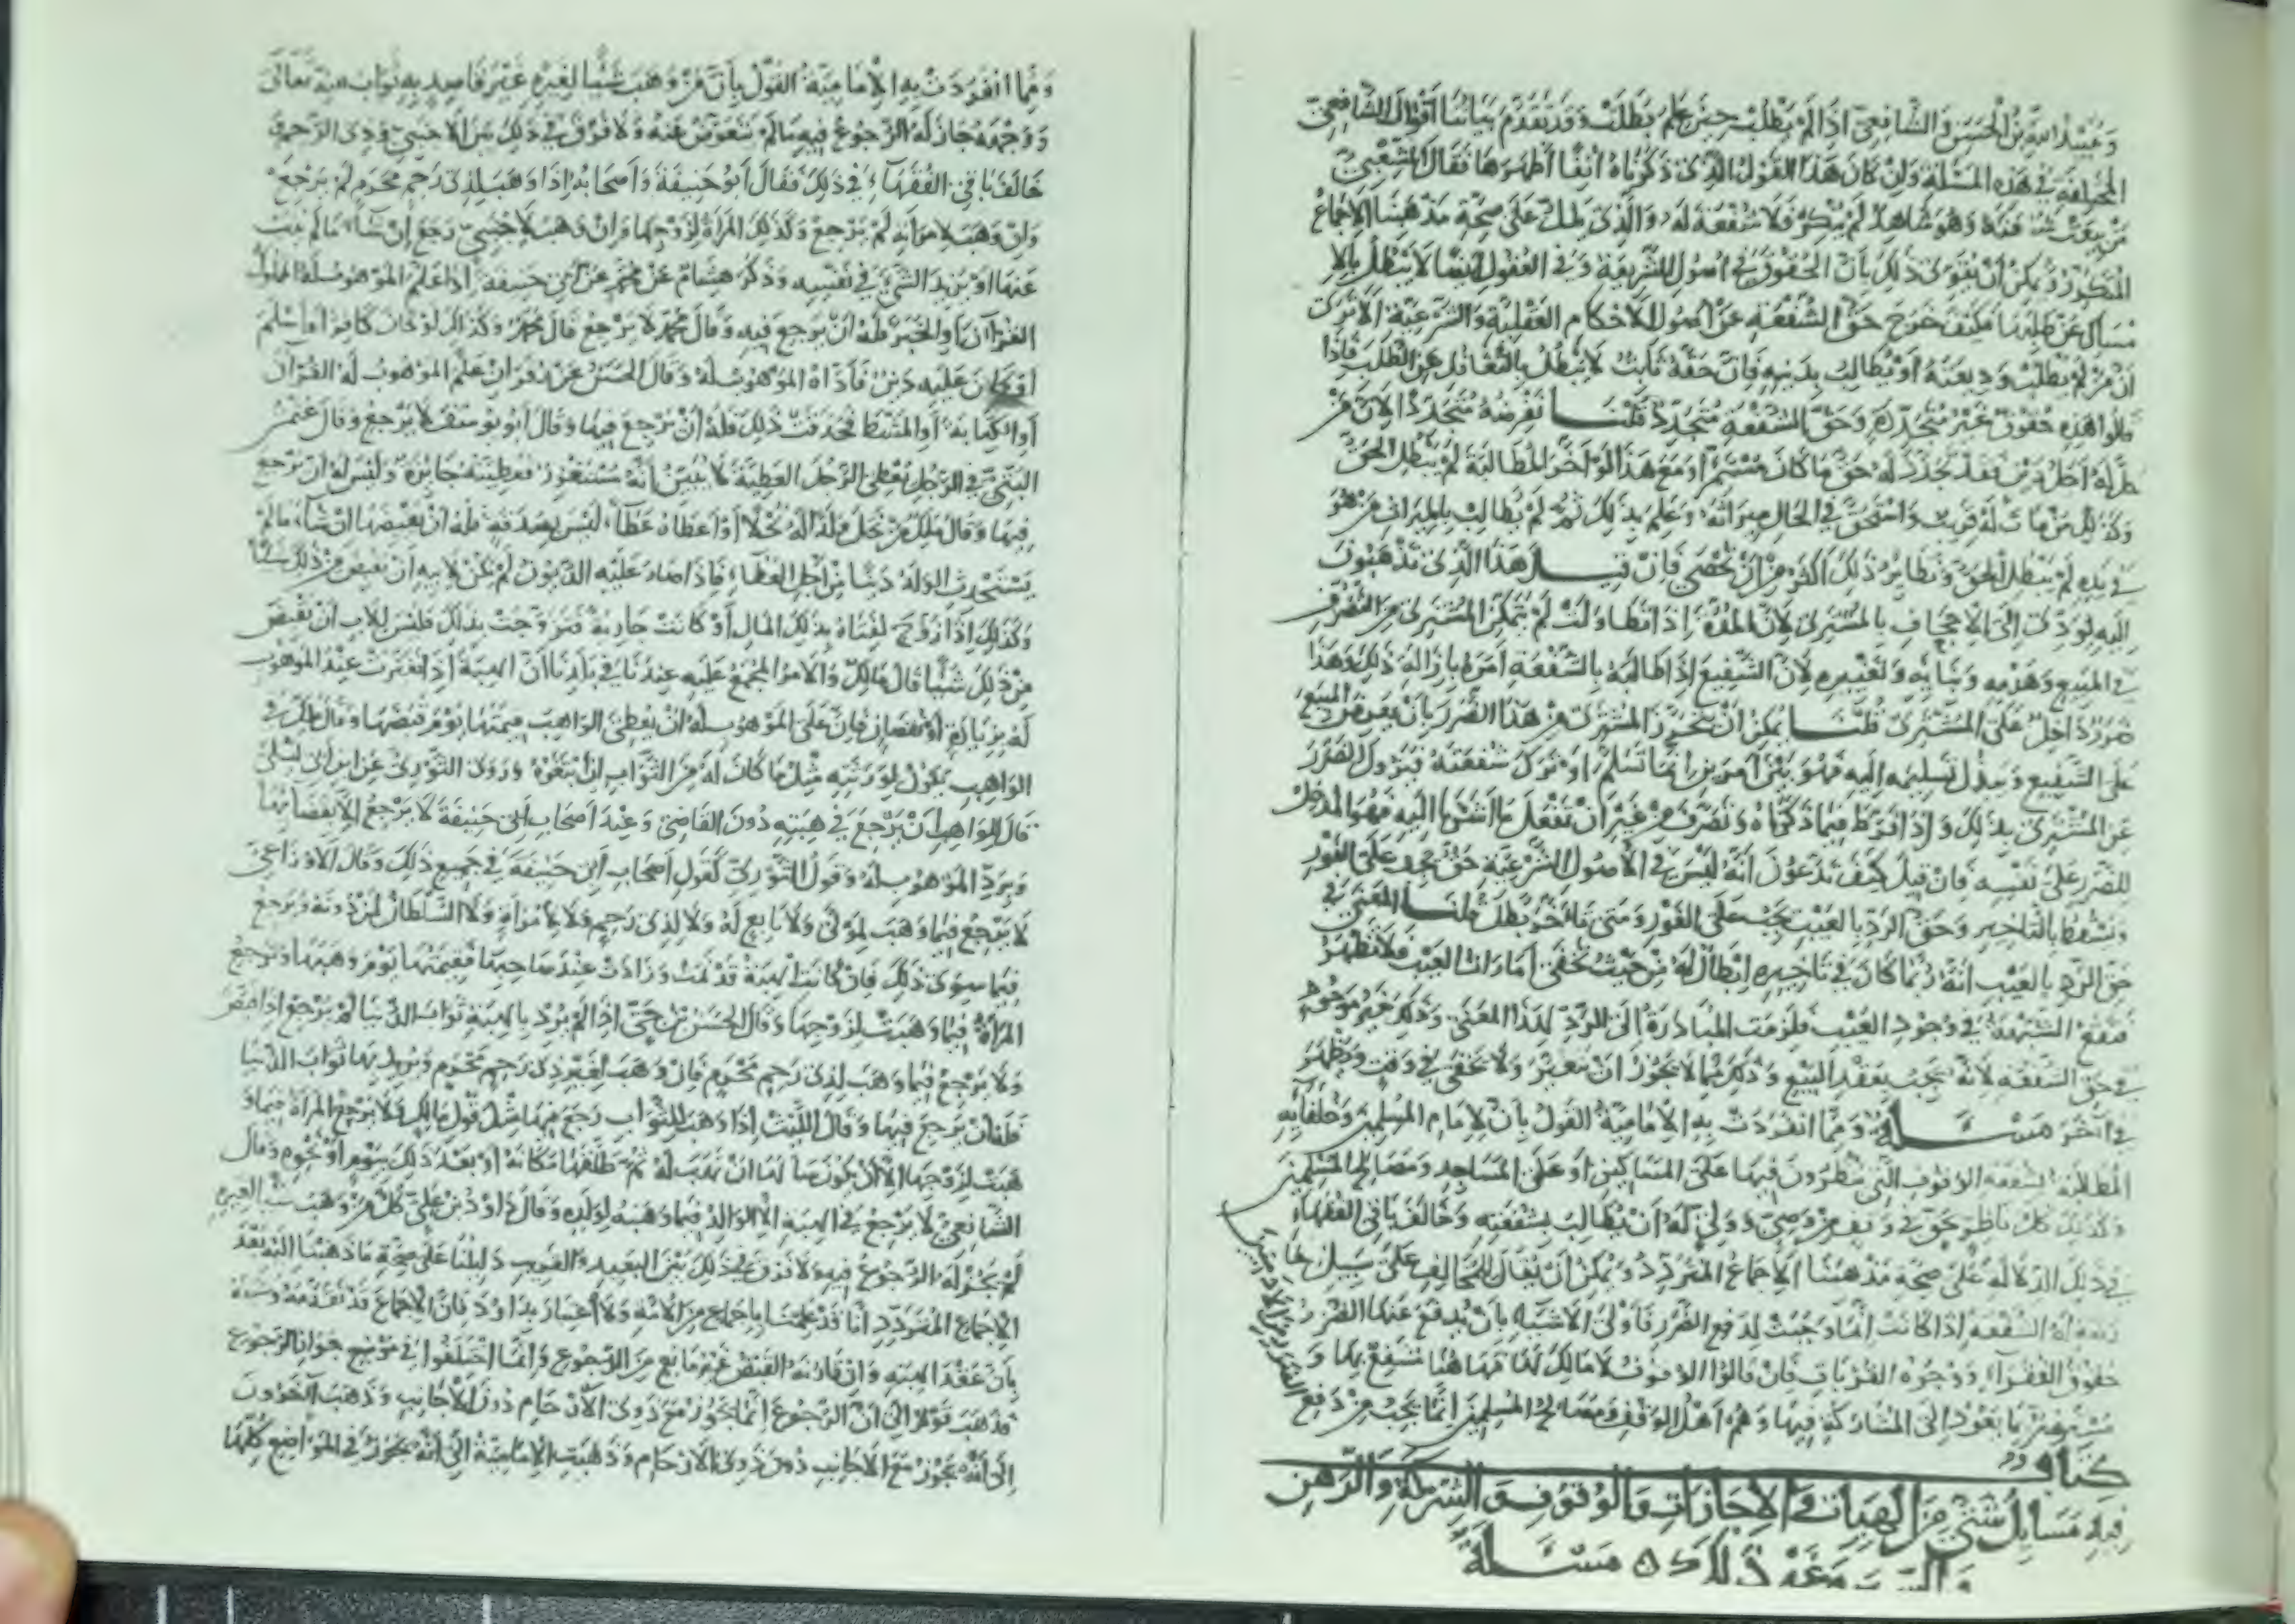 وعبيد الله بن الحسن والشافعي اذا لم يطلب حين علم بطلت وقد تقدم بياننا أقوال الشافعي
المختلفة في هذه المسئلة وان كان هذا القول الذي ذكرناه انفا أظهرها فقال الشعبي
من بيعت شفعته وهو شاهد لم ينكر فلا شفعة له والذي يدل على صحة مذهبنا الاجماع
المتكرر ويمكن أن يقوى ذلك بأن الحقوق في اصول الشريعة وفي العقول ايضا لا يبطل بالا
مساك عن طلبها فكيف خرج حق الشفعة عن اصول الاحكام العقلية والشرعية الا ترى
ان من لم يطلب وديعته أو يطالب بدينه فان حقه ثابت لا يبطل بالتغافل عن الطلب فاذا
قالوا هذه حقوق غير متجددة وحق الشفعة متجدد قلنا نفرضه متجددا لان من
حل له اجل دين فقد تجدد له حق ما كان مستمرا ومع هذا لو أخر المطالبة لم يبطل الحق
وكذلك من مات له قريب واستحق في الحال ميراثه وعلم بذلك ثم لم يطالب بالميراث من هو
في يده لم يبطل الحق ونظاير ذلك اكثر من ان تحصى فان قيل هذا الذي تذهبون
اليه يودى الى الاجحاف بالمشترى لان المدة اذا تطاولت لم يتمكن المشترى من التصرف
في المبيع وهدمه وبنائه وتغييره لان الشفيع اذا طالبه بالشفعة امره بازالة ذلك وهذا
ضرر داخل على المشترى قلنا يمكن ان يتحرز المشترى من هذا الضرر بان يعرض المبيع
على الشفيع ويبذل تسليمه اليه فهو بين أمرين اما تسلم او ترك شفعته فيزول الضرر
عن المشترى بذلك واذا فرط فيما ذكرناه وتصرف من غير ان يفعل ما اشرنا اليه فهو المدخل
للضرر على نفسه فان قيل كيف تدعون انه ليس في الاصول الشرعية حق يجب على الفور
ويسقط بالتاخير وحق الرد بالعيب يجب على الفور ومتى تأخر بطل قلنا المعنى في
حق الرد بالعيب انه ربما كان في تاخيره ابطال له من حيث تخفى امارات العيب فلا تظهر
فتقع الشبهة في وجود العيب فلزمت المبادرة الى الرد لهذا المعنى وذلك غير موجود
في حق الشفعه لانه يجب بعقد البيع وذلك مما لا يجوز أن يتغير ولا يخفى في وقت ويظهر
في آخر مسئلة ومما انفردت به الامامية القول بان لامام المسلمين وخلفائه
المطالبة بشفعة الوقوف التي ينظرون فيها على المساكين او على المساجد ومصالح المسلمين
وكذلك كل ناظر بحق في وقف من وصي وولي له أن يطالب بشفعته وخالف باقي الفقهاء
في ذلك الدلالة على صحة مذهبنا الاجماع المتردد ويمكن أن يقال للمخالف على سبيل
الشفعة اذا كانت انما وجبت لدفع الضرر فاولى الاشياء بان يدفع عنها الضرر
حقوق الفقراء ووجوه القربات فان قالوا الوقوف لا مالك لها فيها هنا
ما يعود الى المشاركة فيها وهم أهل الوقف ومصالح المسلمين انما يجب من دفع
الضرر
كتاب
فيه مسايل شتى من الهبات والاجارات والوقوف والشركة والرهن
ونحو ذلك مسئلة
ومما انفردت به الامامية القول بأن من وهب شيئا لغيره غير قاصد به ثواب الله تعالى
ووجهه جاز له الرجوع فيه ما لم يتعوض عنه ولا فرق في ذلك بين الاجنبي وذي الرحم
خالف باقي الفقهاء في ذلك فقال أبو حنيفة وأصحابه اذا وهب لذى رحم محرم لم يرجع
وان وهب لامرأته لم يرجع وكذلك المرأة لزوجها وان وهب لاجنبي رجع ان شاء ما لم يثب
عنها او يزيد الشيء في نفسه وذكر هشام عن محمد عن أبي حنيفة اذا علم الموهوب له المملوك
القرآن او الخبز فله ان يرجع فيه وقال محمد لا يرجع قال محمد وكذلك لو كان كافرا فأسلم
او كان عليه دين فأداه الموهوب له وقال الحسن عن زفر ان علم الموهوب له القرآن
أو الكتابة أو المشط فحذقت ذلك فله ان يرجع فيها وقال أبو يوسف لا يرجع وقال عثمن
البتي في الرجل يعطى الرجل العطية لا يبين أنه مستغزر فعطيته جائزة وليس له ان يرجع
فيها وقال ملك من نحل ولدا له نحلا أو أعطاه عطاء ليس بصدقة فله ان يعتصرها ان شاء ما لم
يستحدث الولد دينا من أجل العطاء فاذا صار عليه الديون لم يكن لابيه أن يعتصر من ذلك شيئا
وكذلك اذا زوج لفتاه بذلك المال أو كانت جارية فتزوجت بذلك فليس للاب أن يقبض
من ذلك شيئا قال مالك والامر المجمع عليه عندنا في بلدنا أن الهبة اذا تغيرت عند الموهوب
له بزيادة أو نقصان فان على الموهوب له ان يعطى الواهب قيمتها يوم قبضها وقال ملك في
الواهب يكون لورثته مثل ما كان له من الثواب ان اتبعوه وروى الثوري عن ابن أبي ليلى
قال للواهب ان يرجع في هبته دون القاضي وعند أصحاب أبي حنيفة لا يرجع الا بقضاء
ويرد الموهوب له وقول الثوري كقول أصحاب أبي حنيفة في جميع ذلك وقال الاوزاعي
لا يرجع فيما وهب لمولى ولا تابع له ولا لذى رحم ولا لامرأة ولا السلطان لمن دونه ويرجع
فيما سوى ذلك فان كانت الهبة قد نمت وزادت عند صاحبها فقيمتها يوم وهبها وترجع
المرأة فيما وهبت لزوجها وقال الحسن بن حي اذا لم يرد بالهبة ثواب الدنيا لم يرجع اذا قبض
ولا يرجع فيما وهب لذى رحم محرم فان وهب لغير ذى رحم محرم ويريد بها ثواب الدنيا
فله أن يرجع فيها وقال الليث اذا وهب للثواب رجع فيها مثل قول مالك ولا يرجع المرأة فيما و
هبت لزوجها الا أن يكون سألها ان تهب له ثم طلقها مكانه أو بعد ذلك بيوم أو نحوه وقال
الشافعي لا يرجع في الهبة الا الوالد فيما وهبه لولده وقال داود بن علي كل من وهب شيئا لغيره
لم يجز له الرجوع فيه ولا فرق في ذلك بين البعيد والقريب دليلنا على صحة ما ذهبنا اليه بعد
الاجماع المتردد أنا قد علمنا باجماع من الامة ولا اعتبار بداود فان الاجماع قد تقدمه
بان عقد الهبة وان قارنه القبض غير مانع من الرجوع وانما اختلفوا في موضع جواز الرجوع
فذهب قوم الى ان الرجوع انما يجوز مع ذوى الارحام دون الأجانب وذهب آخرون
الى أنه يجوز مع الاجانب دون ذوى الارحام وذهبت الامامية الى أنه يجوز في المواضع كلها